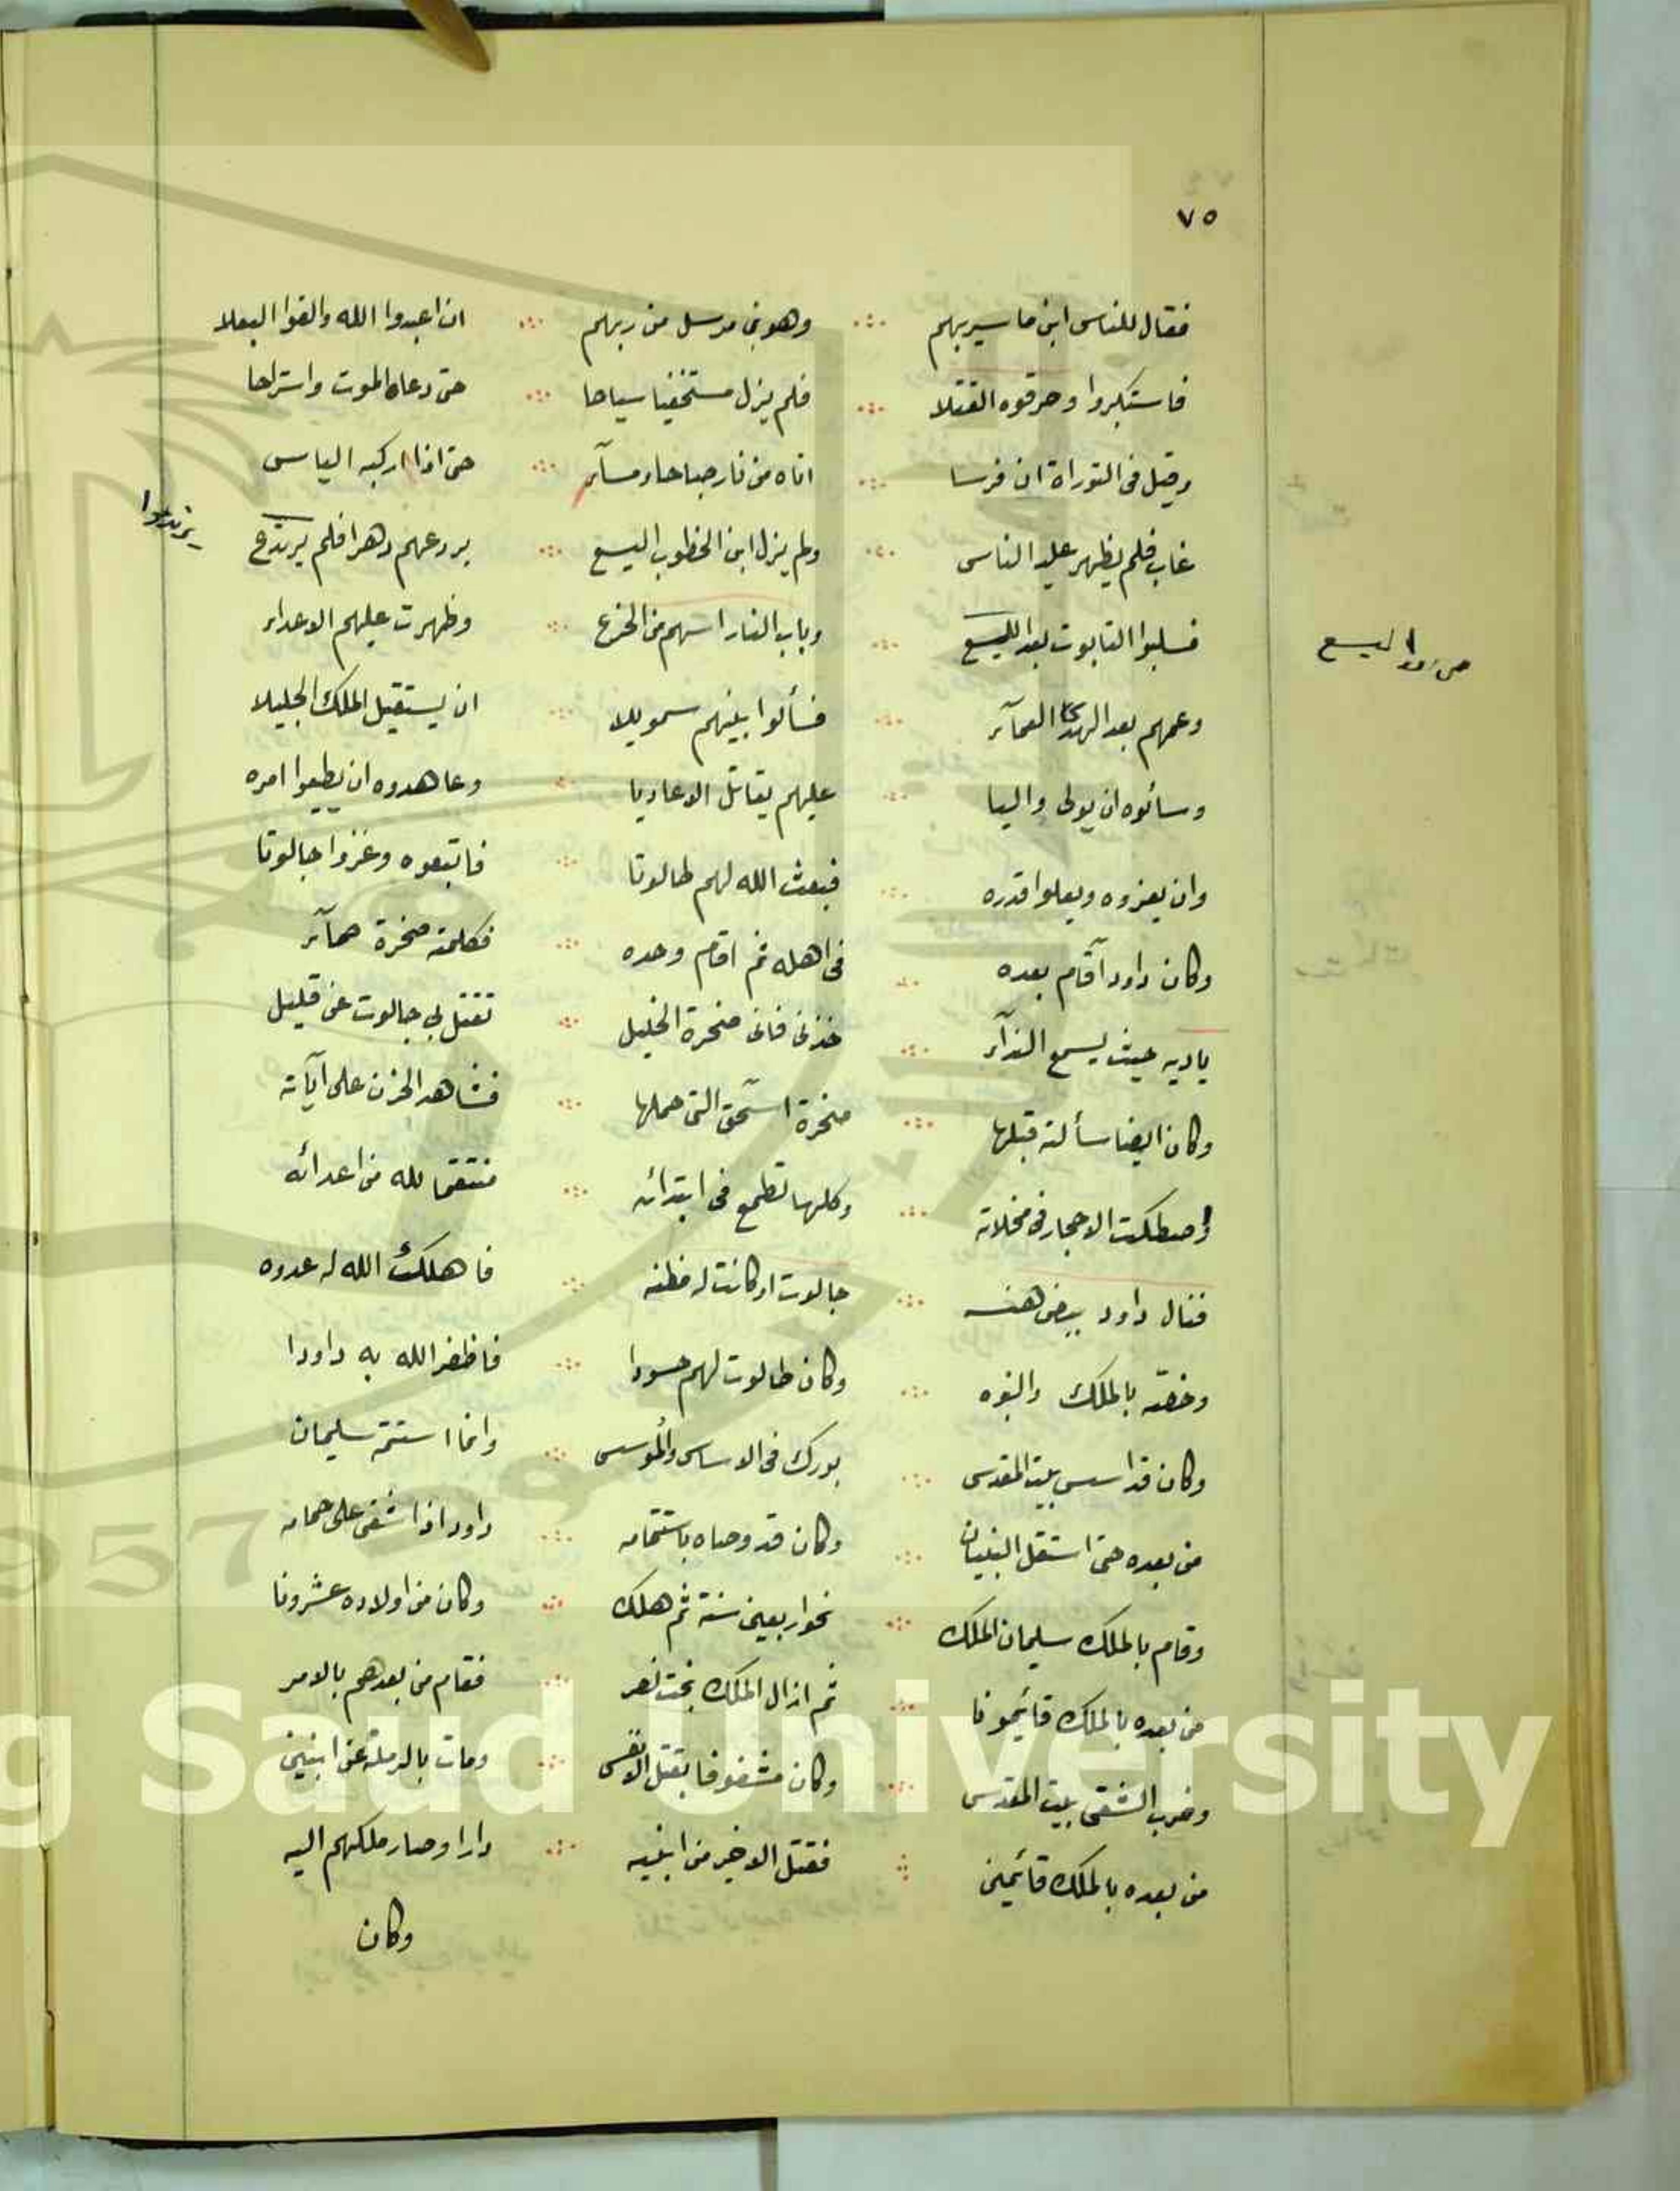 ٧٥
فقال للناس ابن ما سيربهم ∴ وهو نبي مرسل من ربهم ∴ ان اعبدوا الله والقوا البعلا
فاستكبروا وحرقوه القتلا ∴ فلم يزل مستخفيا سياحا ∴ حتى دعاه الموت واستراحا
وقيل في التوراة ان فرسا ∴ اتاه من نار صباحا ومسآء ∴ حتى اذا ركبه الياس
غاب فلم يظهر عليه الناس ∴ ولم يزل ابن الخطوب اليسع ∴ يردعهم دهرا فلم يرتدع
يرتدعوا
فسلبوا التابوت بعد اليسع ∴ وباب النار اسهم من الخزع ∴ وظهرت عليهم الاعداء
اليسع
وعمهم بعد الهدى العمآء ∴ فسألوا نبيهم سمويلا ∴ ان يستقيل الملك الجليلا
وسائوه ان يولى واليا ∴ عليهم يقاتل الاعاديا ∴ وعاهدوه ان يطيعوا امره
وان يعزوه ويعلوا قدره ∴ فبعث الله لهم طالوتا ∴ فاتبعوه وغزوا جالوتا
وكان داود آقام بعده ∴ في اهله ثم اقام وحده ∴ فكلمته صخرة صمآء
ياديه حيث يسمع الندآء ∴ خذني فانى صخرة الخليل ∴ تقتل بي جالوت عن قليل
وكان ايضا سألته قبلها ∴ صخرة اسحق التى حملها ∴ فشاهد الحزن على آياته
واصطكت الاحجار في مخلاته ∴ وكلها تطمع في ابتدائه ∴ منتقما لله من اعدائه
فنال داود ببعض هنه ∴ جالوت اذ كانت له مظنه ∴ فاهلك الله له عدوه
وخصّه بالملك والنبوه ∴ وكان طالوت لهم حسودا ∴ فاظفر الله به داودا
وكان قد اسس بيت المقدس ∴ بورك في الاساس والمؤسس ∴ وانما استتمه سليمان
من بعده حتى استقل البنيان ∴ وكان قد وصاه باستتمامه ∴ داود اذ اشفى على حمامه
وقام بالملك سليمان الملك ∴ نحو اربعين سنة ثم هلك ∴ وكان من اولاده عشرونا
من بعده بالملك قائيمونا ∴ ثم ازال الملك بخت نصر ∴ فقام من بعدهم بالامر
وخرب الشقى بيت المقدس ∴ وكان مشغوفا بقتل الانفس ∴ ومات بالرملة عن ابنين
من بعده بالملك قائيمين ∴ فقتل الاخير من ابنيه ∴ دارا وصار ملكهم اليه
وكان